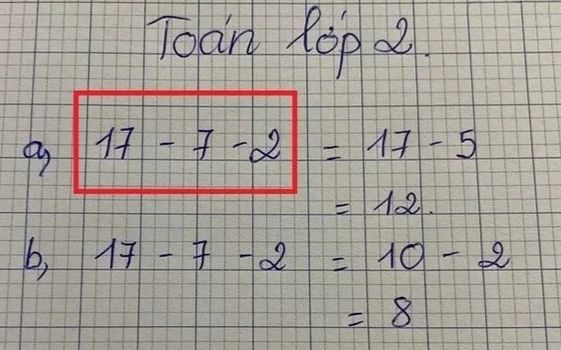 Toán lớp 2.
a, 17 - 7 - 2 = 17 - 5
= 12.
b, 17 - 7 - 2 = 10 - 2
= 8